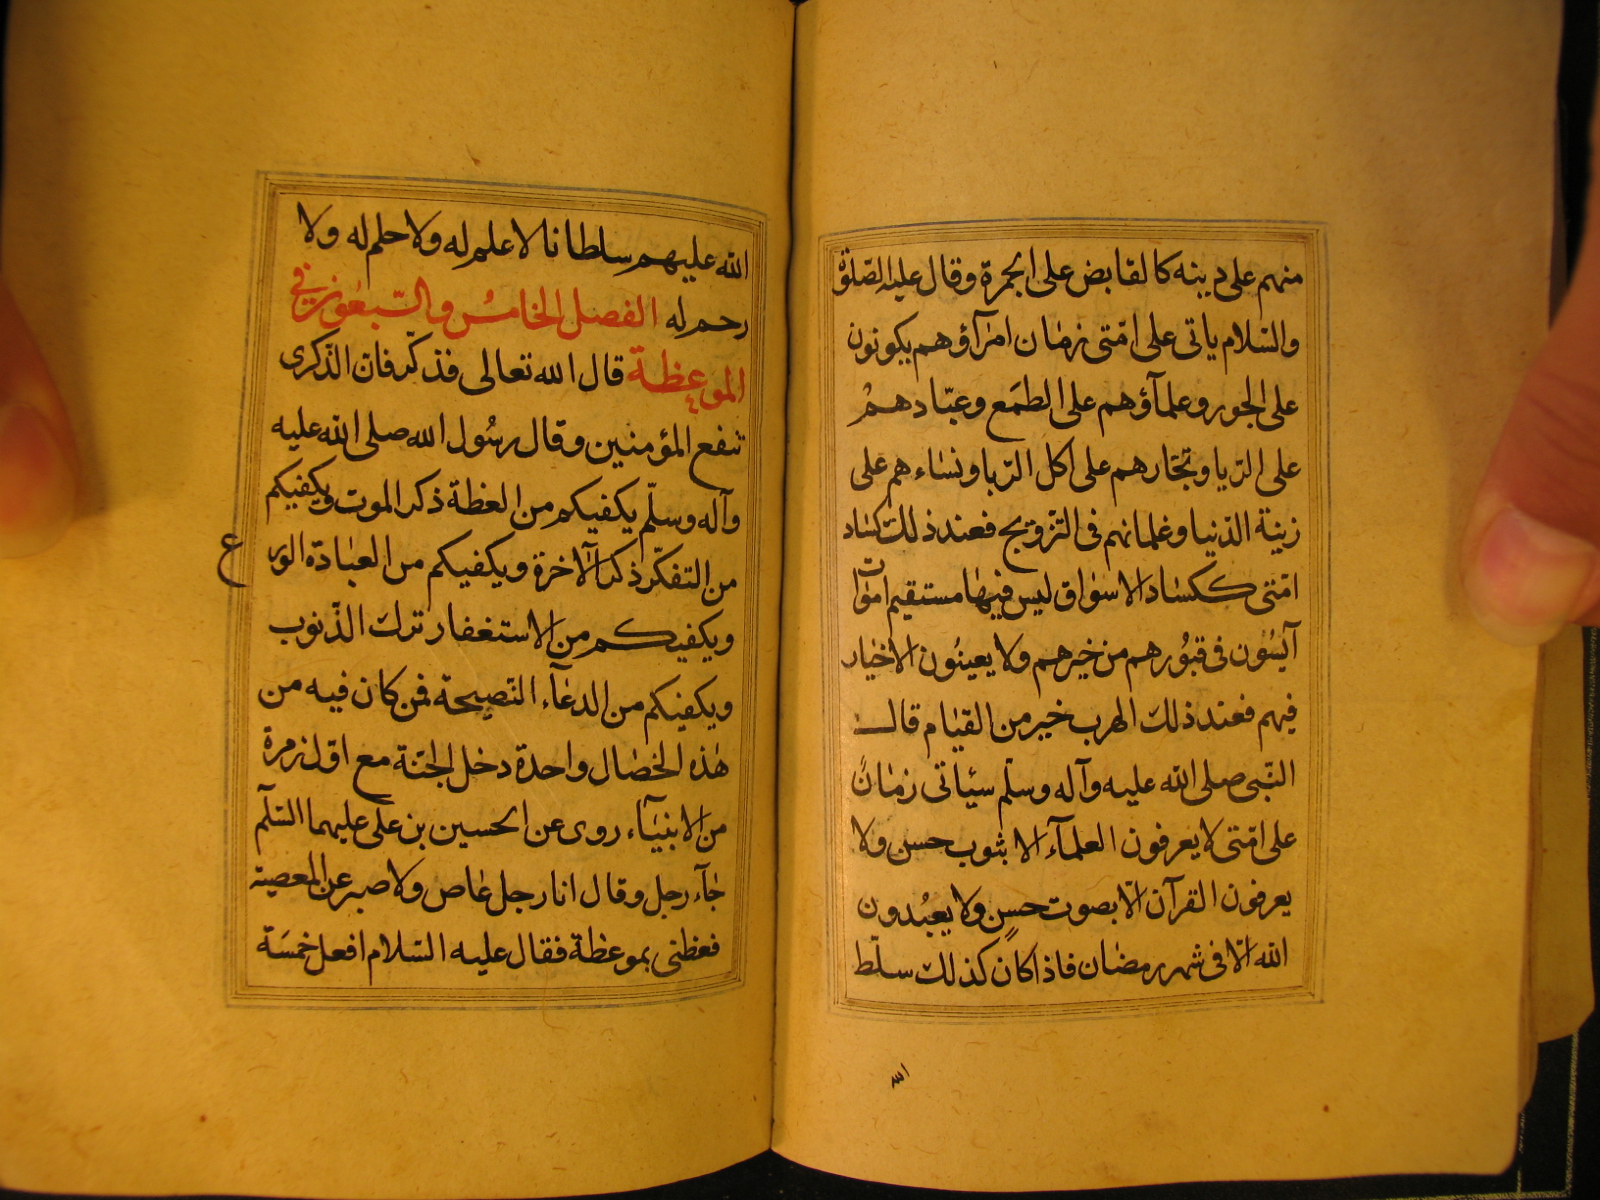 منهم على دينه كالقابض على الجمرة وقال عليه الصّلوة
والسّلام ياتى على امّتى زمان امرآؤهم يكونون
على الجور وعلمآؤهم على الطمَع وعبّادهمْ
على الرّيا وتجّارهم على اكل الرّبا ونسَاءهم على
زينة الدّنيا وغلمانهم فى التزويج فعند ذلك كسَاد
امّتى ككسَاد الاسوَاق ليس فيهَا مستقيم اموَات
آيسُون فى قبُورهم من خيرهم ولا يعينُون الاخيار
فيهم فعند ذلك الهرب خير من القيام قالـــ
النّبى صلى الله عليه وآله وسلّم سيأتى زمَانٌ
على امّتى لا يعرفون العلمآء الا بثوب حسن ولا
يعرفون القرآن الّا بصوت حسنٍ ولا يعبُدون
الله الّا فى شهر رمضَان فاذا كان كذلك سلّط
الله
الله عليهم سلطانا لا علم له ولا حلم له ولا
رحم له الفصل الخامسُ والسّبعُون فى
الموعظة قال الله تعالى فذكّر فان الذّكرى
تنفع المؤمنين وقال رسُول الله صلى الله عليه
وآله وسلّم يكفيكم من العظة ذكر الموت ويكفيكم
من التفكّر ذكر الآخرة ويكفيكم من العبَادة الور
ع
ويكفيكم من الاستغفار ترك الذّنوب
ويكفيكم من الدعَآء النّصيحة فمن كان فيه من
هٰذه الخصَال واحدة دخل الجنّة مع اوّل زمرة
من الانبيَآء روى عن الحسين بن على عليهما السّلام
جَآء رجل وقال انا رجل عَاص ولا صبر عن المعصية
فعظنى بموعظة فقال عليه السّلام افعل خمسَة